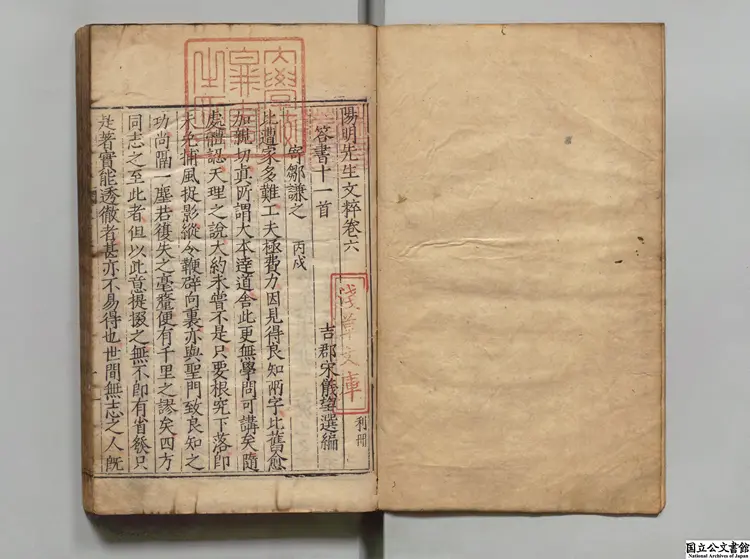 陽明先生文粹卷六
答書十一首
吉郡宋儀望選編
寄鄒謙之 丙戌
比遭家多難工夫極費力因見得良知兩字比舊愈
加親切真所謂大本逹道舍此更無學問可講矣隨
處體認天理之說大約未嘗不是只要根究下落即
未免捕風捉影縱令鞭辟向裏亦與聖門致良知之
功尚隔一塵若復失之毫釐便有千里之謬矣四方
同志之至此者但以此意提掇之無不即有省發只
是著實能透徹者甚亦不易得也世間無志之人既
淺草文庫
利冊
国立公文書館
National Archives of Japan